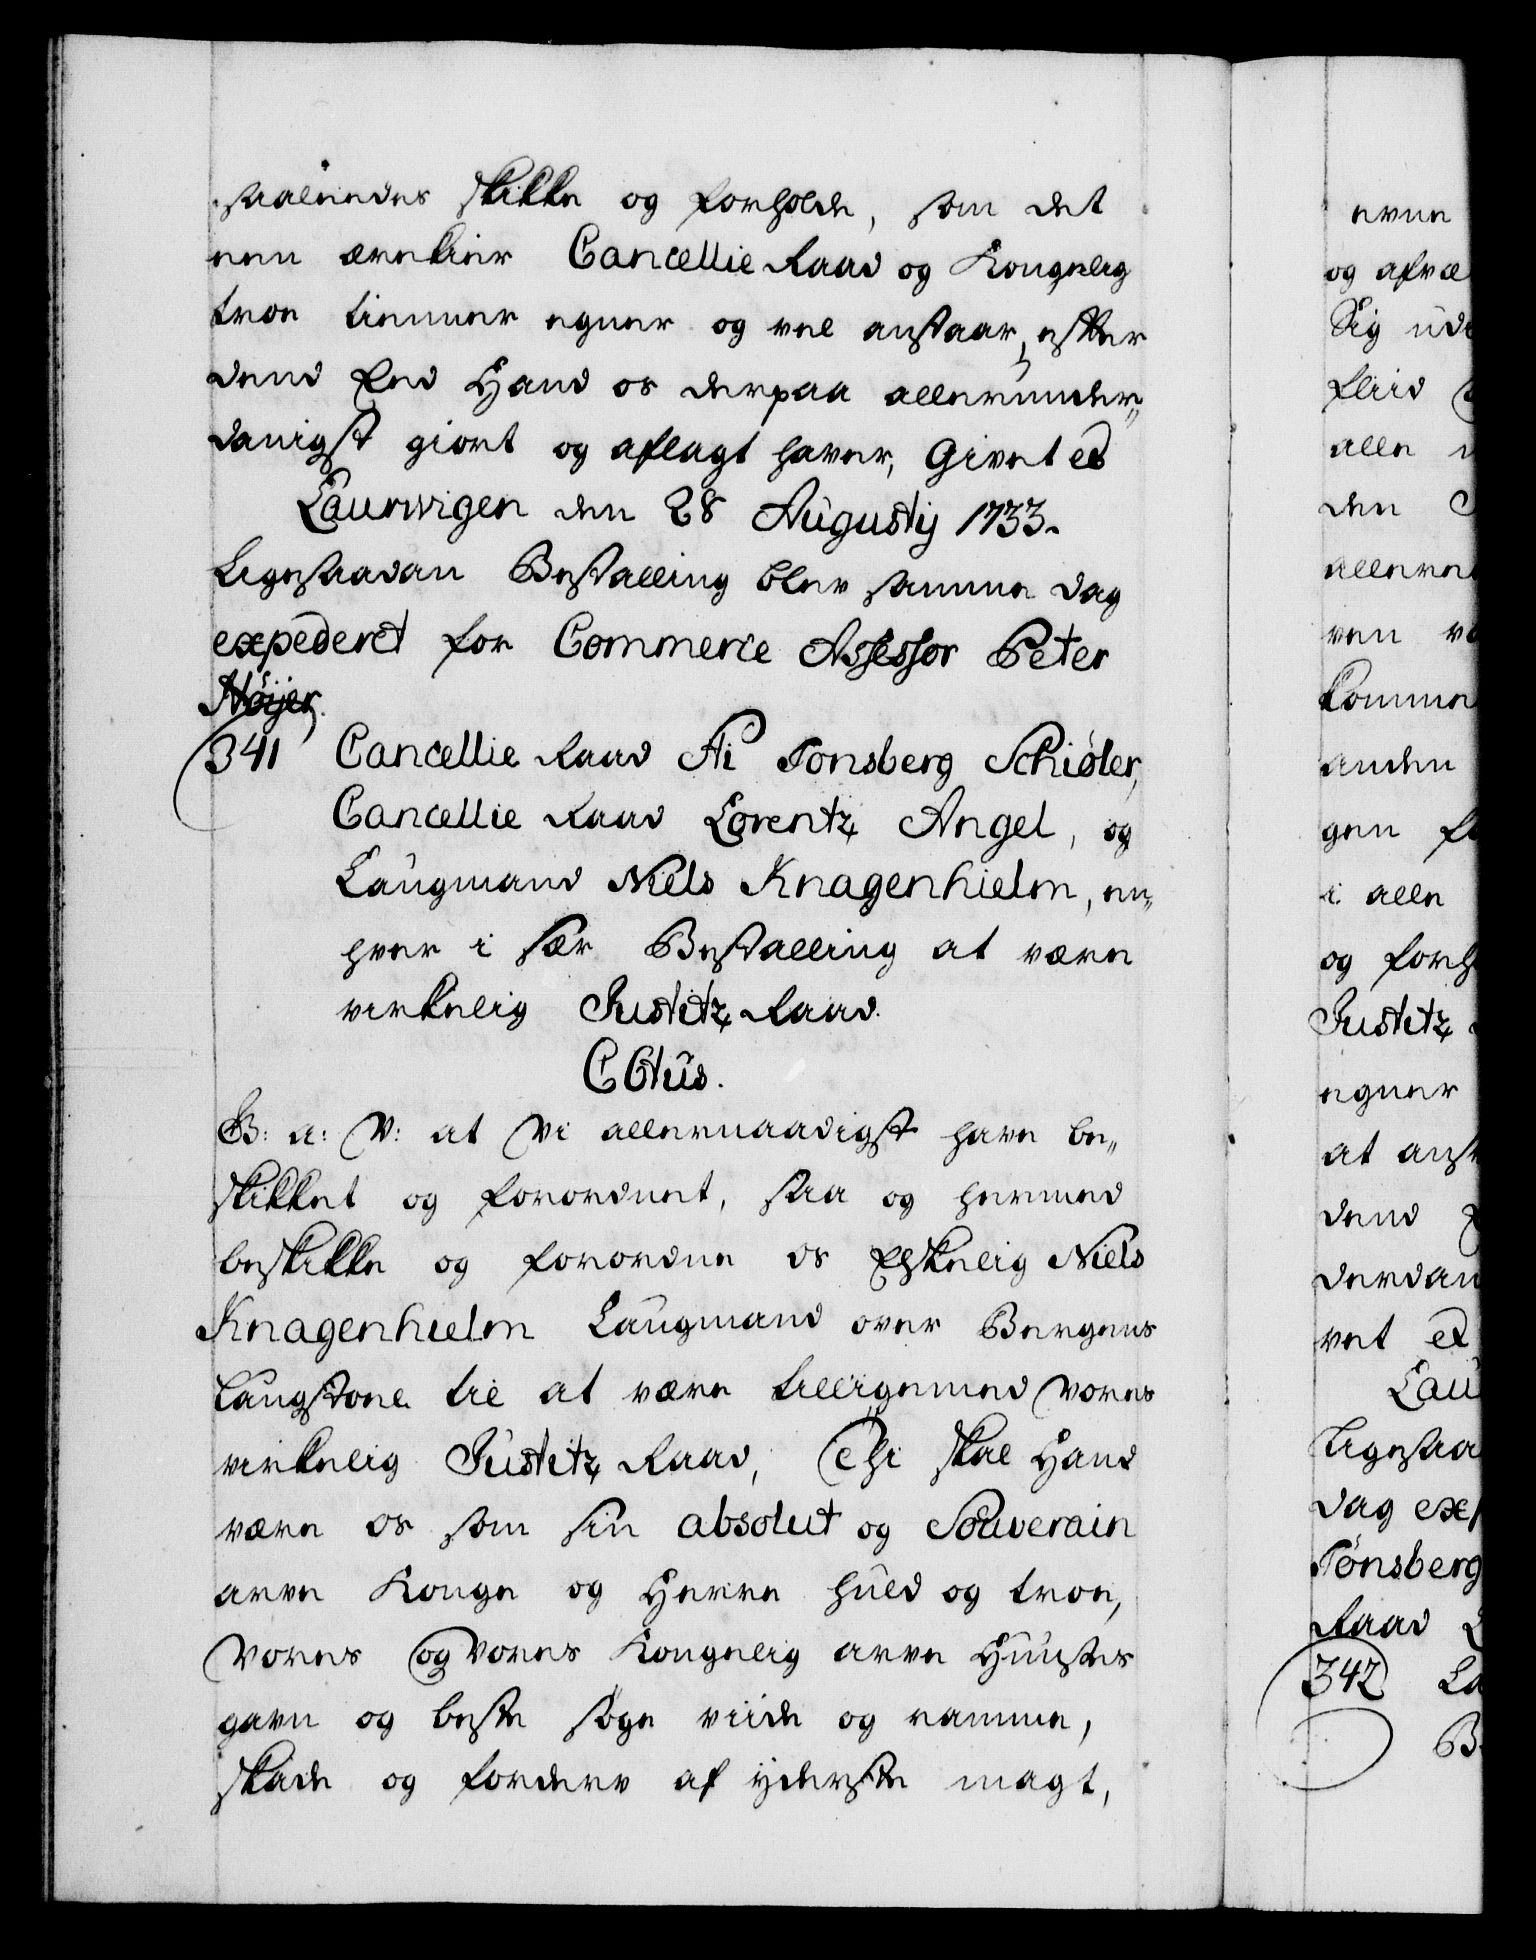 saaleedes skikke og forholde, som det
een ærekier Cancellie Raad og Kongelig
troe tienner egner og vel anstaar, efter
dend Eed Hand os derpaa allerunder„
danigst giort og aflagt haver, Givet etc
Laurwigen den 28 Augustij 1733.
Ligesaadan Bestalling blev samme Dag
expederet for Commerce Assessor Peter
Höijer.
341 Cancellie Raad Ai Tonsberg Schiøler,
Cancellie Raad Lorentz Angel, og
Laugmand Niels Knagenhielm, en„
hver i sær Bestalling at være
virkelig Justitz Raad.
C6tus.
G: a: V: at Vi allernaadigst have be„
skikket og forordnet, saa og hermed
beskikke og forordne os Elskelig Niels
Knagenhielm Laugmand over Bergens
Laugstoel til at være tilligemed vores
virkelig Justitz Raad, Thi skal Hand
være os som sin absolut og Souverain
arve Konge og Herre huld og troe,
Vores og vores Kongelig arve Huuses
gavn og beste søge viide og ramme,
skade og forderv af yderste magt,
evne
og afvæ
Sig ude
fliid
alle
den
allerun
ven
komme
anden
gen
i alle
og forh
Justitz
egner
at anst
dend
derdan
vet etc
Lau
Ligesaa
Dag exp
Tönsberg
Raad
342 La
B